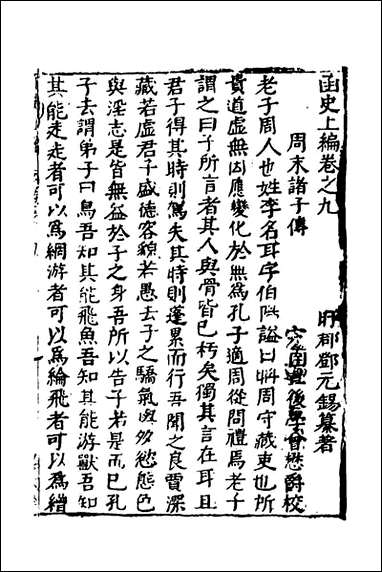 函史上編卷之九
盱郡鄧元錫纂著
周末諸子傳
後學曾懋爵校
老子周人也姓李名耳字伯陽謚曰聃周守藏吏也所
貴道虛無因應變化於無為孔子適周從問禮焉老子
謂之曰子所言者其人與骨皆已朽矣獨其言在耳且
君子得其時則駕失其時則蓬累而行吾聞之良賈深
藏若虛君子盛德容貌若愚去子之驕氣與多慾態色
與淫志是皆無益於子之身吾所以告子若是而已孔
子去謂弟子曰鳥吾知其能飛魚吾知其能游獸吾知
其能走走者可以為網游者可以為綸飛者可以為矰